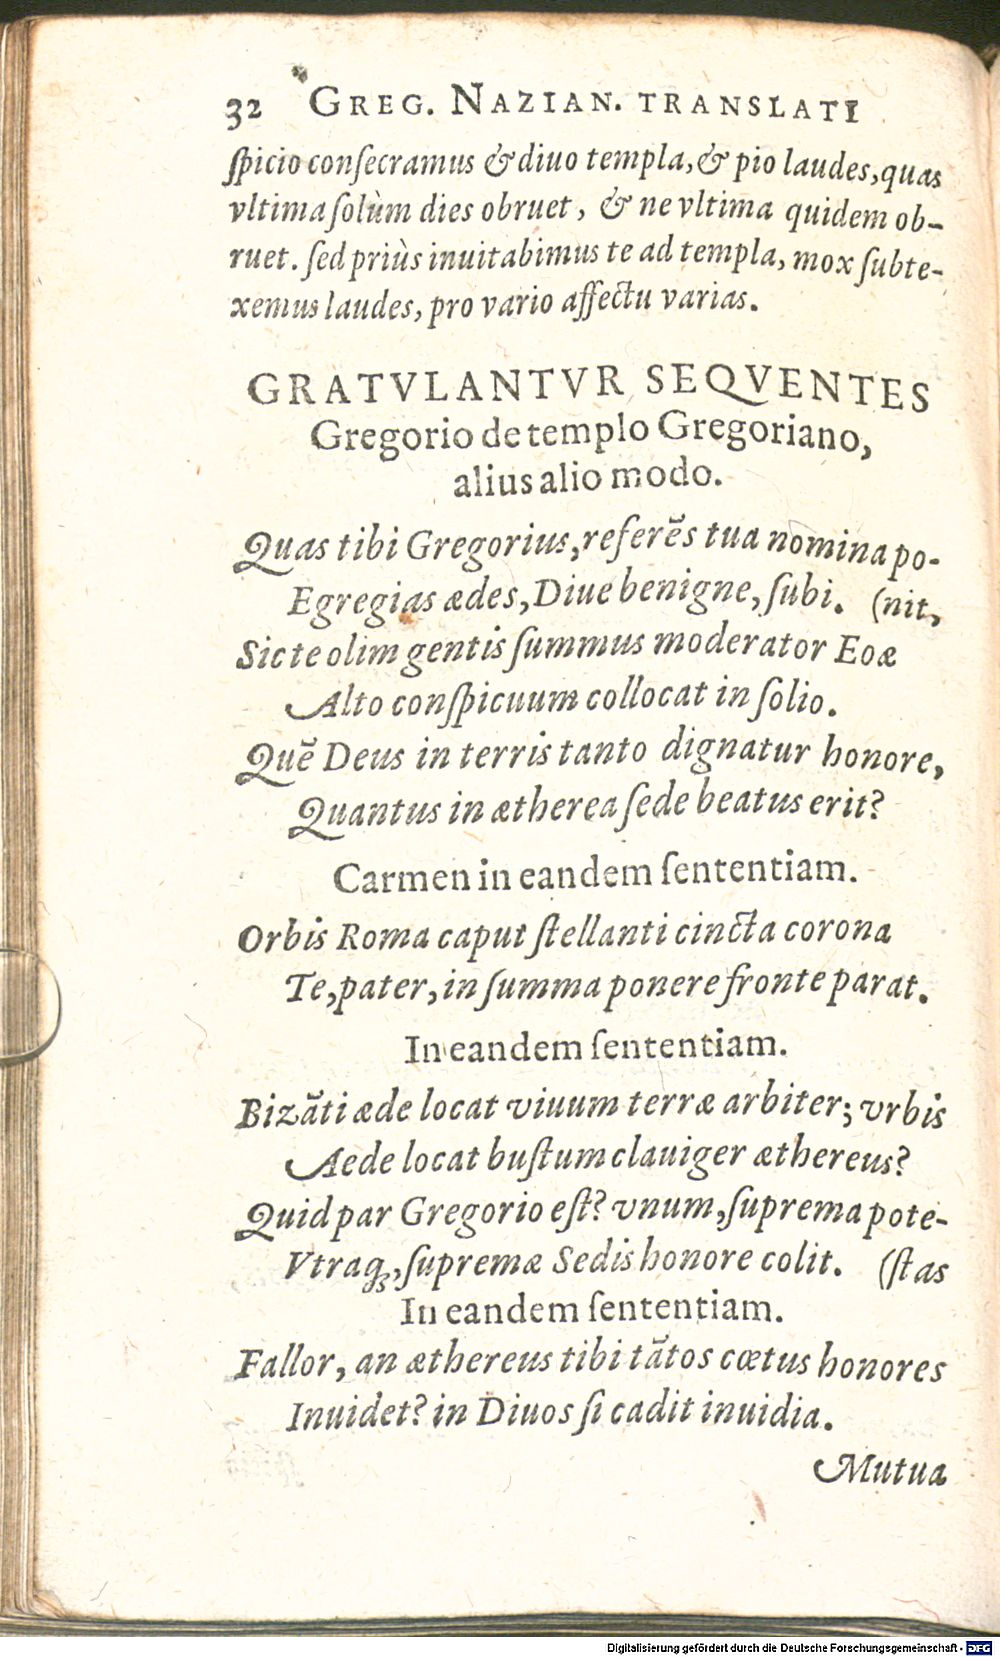 32 GREG. NAZIAN. TRANSLATI
ſpicio conſecramus & diuo templa, & pio laudes, quas
vltima ſolùm dies obruet, & ne vltima quidem ob-
ruet. ſed priùs inuitabimus te ad templa, mox ſubte-
xemus laudes, pro vario affectu varias.
GRATVLANTVR SEQVENTES
Gregorio de templo Gregoriano,
alius alio modo.
Quas tibi Gregorius, referẽs tua nomina po-
Egregias ædes, Diue benigne, ſubi. (nit,
Sic te olim gentis ſummus moderator Eoæ
Alto conſpicuum collocat in ſolio.
Quẽ Deus in terris tanto dignatur honore,
Quantus in ætherea ſede beatus erit?
Carmen in eandem ſententiam.
Orbis Roma caput ſtellanti cincta corona
Te, pater, in ſumma ponere fronte parat.
In eandem ſententiam.
Bizãti æde locat viuum terræ arbiter; vrbis
Aede locat buſtum clauiger æthereus?
Quid par Gregorio eſt? vnum, ſuprema pote-
Vtraq;, ſupremæ Sedis honore colit. (ſtas
In eandem ſententiam.
Fallor, an æthereus tibi tãtos cœtus honores
Inuidet? in Diuos ſi cadit inuidia.
Mutua
Digitalisierung gefördert durch die Deutsche Forschungsgemeinschaft - DFG